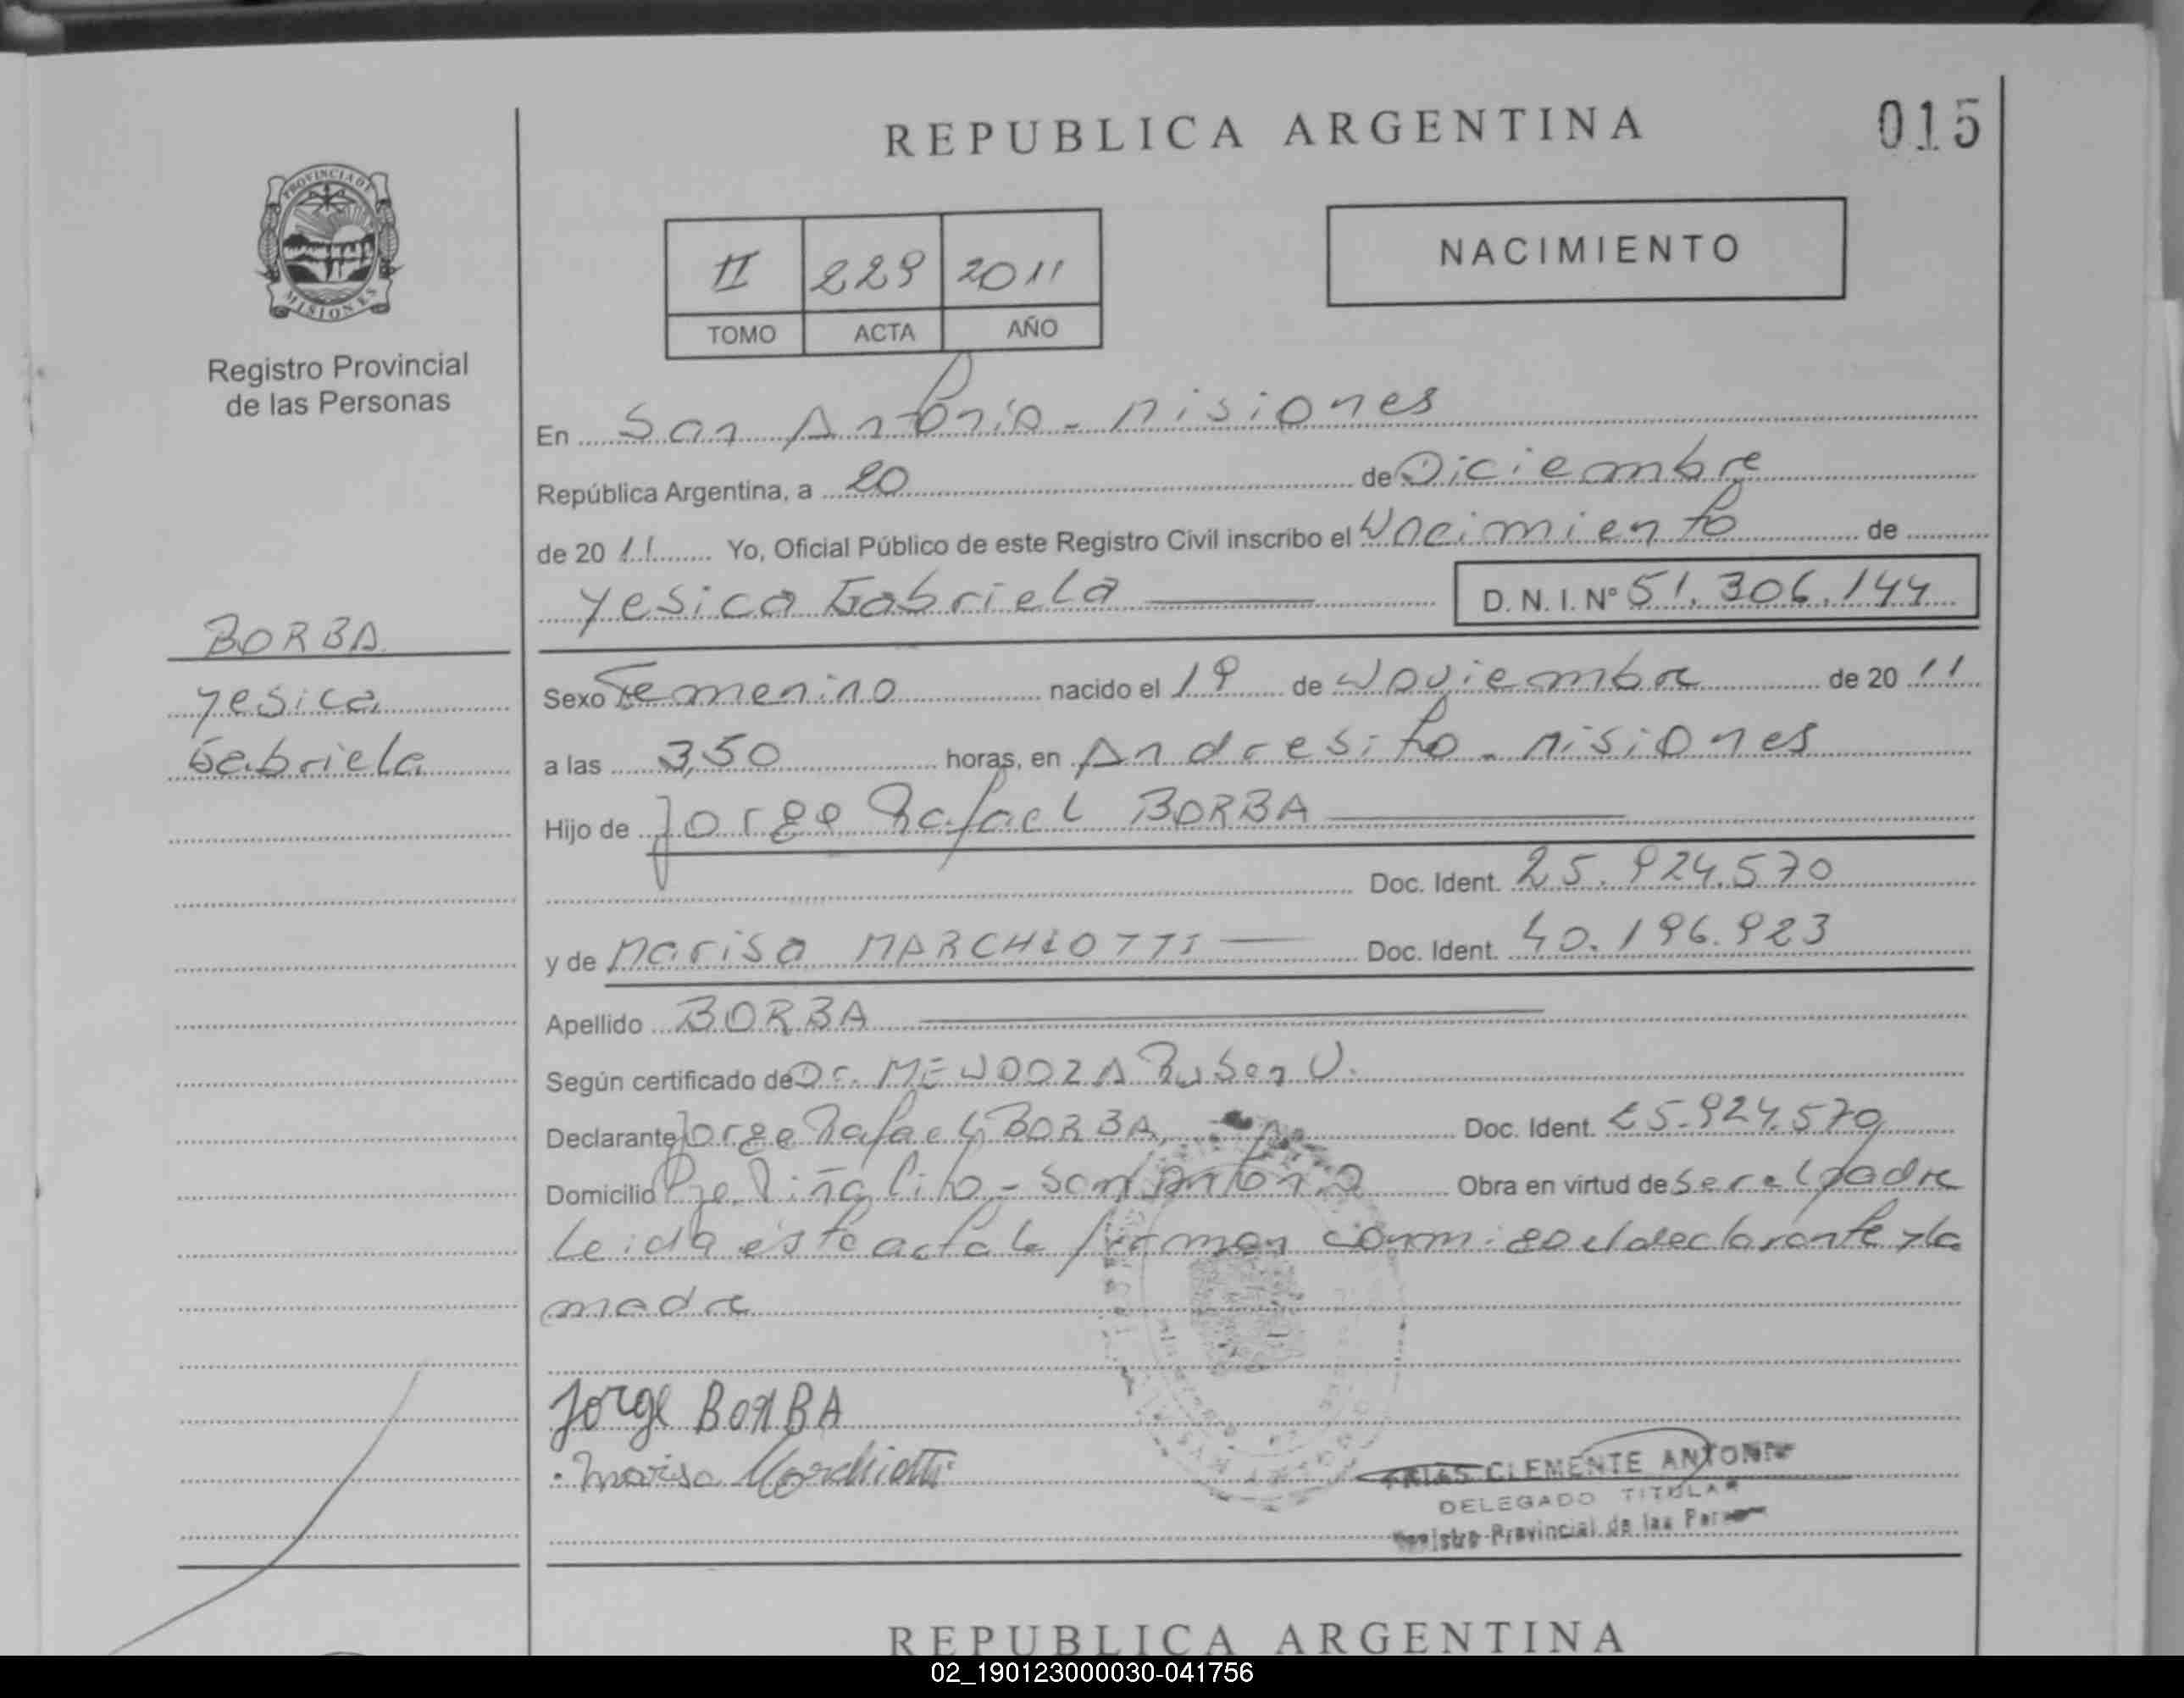 REPUBLICA ARGENTINA
015
PROVINCIA DE
MISIONES
Registro Provincial
de las Personas
II 229 2011
TOMO ACTA AÑO
NACIMIENTO
En San Antonio - Misiones
República Argentina, a 20 de Diciembre
de 20 11 Yo, Oficial Público de este Registro Civil inscribo el Nacimiento de
Yesica Gabriela D. N. I. Nº 51.306.144
BORBA
Yesica
Gabriela
Sexo Femenino nacido el 19 de Noviembre de 20 11
a las 3,50 horas, en Andresito - Misiones
Hijo de Jorge Rafael BORBA
Doc. Ident. 25.924.570
y de Marisa MARCHIOTTI Doc. Ident. 40.196.923
Apellido BORBA
Según certificado de Dr. MENDOZA Ruben
Declarante Jorge Rafael BORBA Doc. Ident. 25.924.570
Domicilio Piñalito - San Antonio Obra en virtud de ser el padre
Leida esta acta la firman conmigo el declarante y la
madre
Jorge BORBA
Marisa Marchiotti
ARIAS CLEMENTE ANTONIO
DELEGADO TITULAR
Registro Provincial de las
REPUBLICA ARGENTINA
02_190123000030-041756